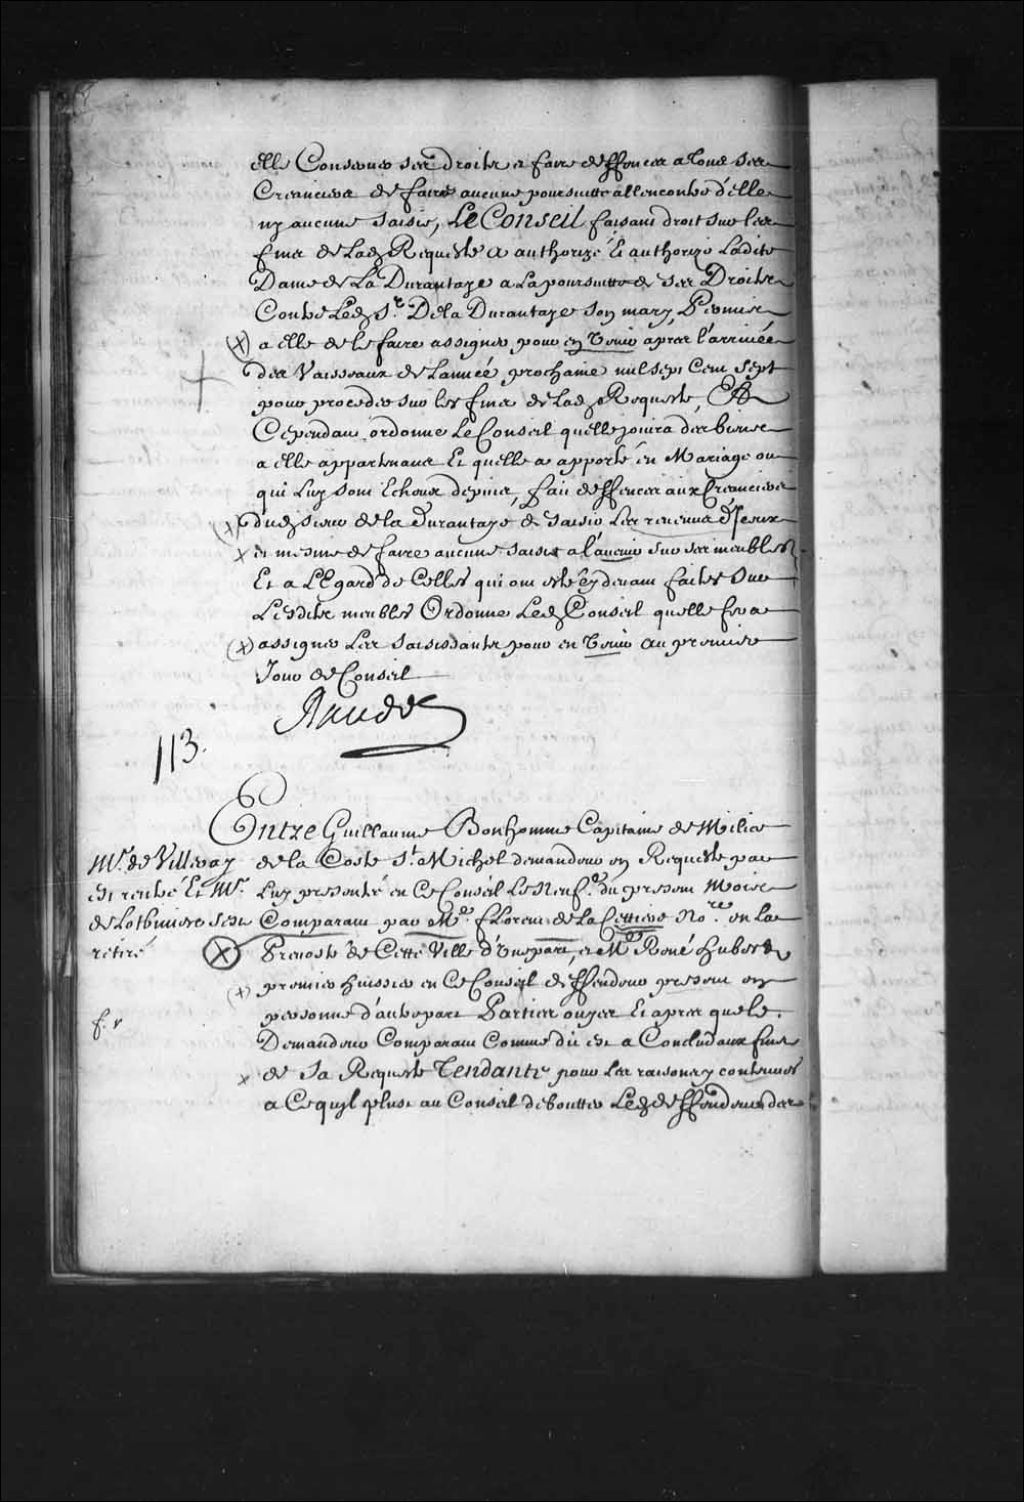 elle Conserver ses droits et faire deffences a tous ses
Creanciers de faire aucune poursuitte allencontre d'elle
ny aucune saisie, Le Conseil faisant droit sur les
fins de Lad Requeste a authorizé Et authorize Ladite
Dame de La Durantaye a La poursuitte de ses Droits
Contre Led Sr. De la Durantaye son mary, Permis
(x) a elle de le faire assigner pour en Venir apres l'arrivée
des Vaisseaux de Lannée prochaine mil sept Cent Sept
pour proceder sur les fins de Lad Requeste, Et
Cependant ordonne Le Conseil quelle jouira des biens
a elle appartenans Et quelle a apporté en Mariage ou
qui Luy sont Echeus depuis, fait deffences aux Creanciers
(x) dud sieur de la Durantaye de saisir Les revenus d'Iceux
x et mesme de faire aucune saisie a l'avenir sur ses meubles
Et a L'Egard de Celles qui ont esté cy devant faites sur
Lesdits meubles Ordonne Led Conseil quelle fera
(x) assigner Les saisissants pour en Venir au premier
Jour de Conseil
Raudot
113.
Entre Guillaume Bonhomme Capitaine de Milice
Mr. de Villeray
est rentré Et Mr.
de Lotbiniere s'est
retiré
de la Coste St. Michel demandeur en Requeste par
Luy presenté en Ce Conseil Le Neufe. du present Mois
Comparant par Me. fLorent de La Cettiere Nore. en La
(x) Prevosté de Cette Ville d'Une part, et Me René hubert
(x) premier huissier en Ce Conseil deffendeur present en
personne d'autre part Parties ouyes Et apres que le
f. r
Demandeur Comparant Comme dit est a Conclud aux fins
x de Sa Requeste Tendante pour Les raisons y contenues
a Ce quyl plust au Conseil deboutter Led deffendeur des